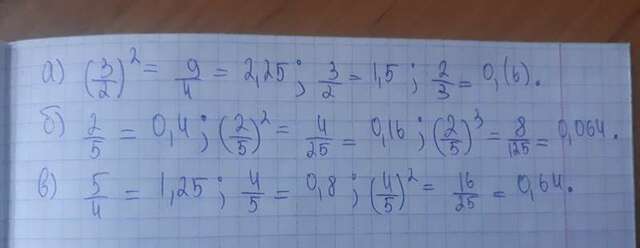 а) (3/2)² = 9/4 = 2,25; 3/2 = 1,5; 2/3 = 0,(6).
б) 2/5 = 0,4; (2/5)² = 4/25 = 0,16; (2/5)³ = 8/125 = 0,064.
в) 5/4 = 1,25; 4/5 = 0,8; (4/5)² = 16/25 = 0,64.